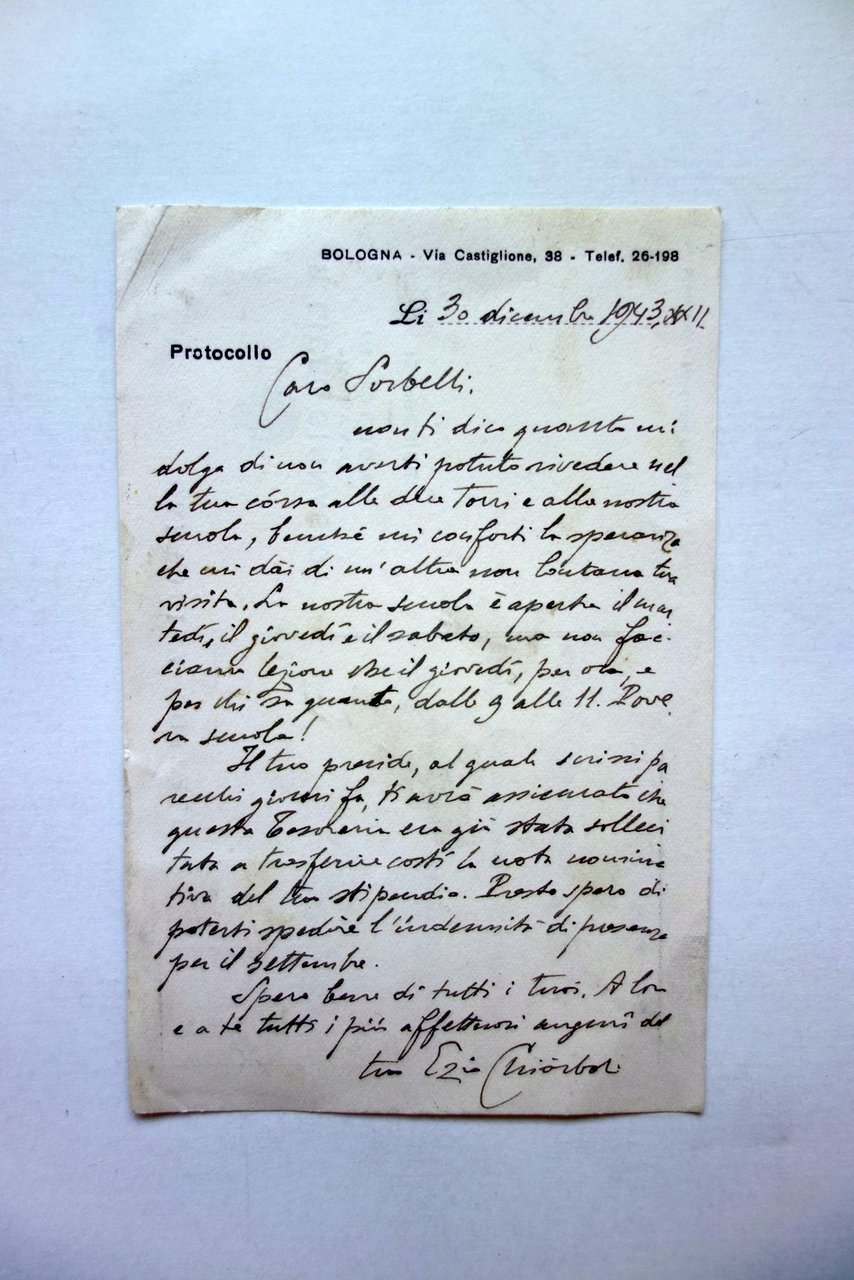 BOLOGNA - Via Castiglione, 38 - Telef. 26-198
Li 30 dicembre 1943, XXII.
Protocollo
Caro Sorbelli,
non ti dico quanto mi
dolga di non averti potuto rivedere nel
la tua córsa alle due Torri e alla nostra
scuola, benché mi conforti la speranza
che mi dài di un'altra non lontana tua
visita. La nostra scuola è aperta il mar
tedí, il giovedí e il sabato, ma non fac-
ciamo lezione che il giovedí, per ora, e
per chi sa quanto, dalle 9 alle 11. Pove
ra scuola!
Il tuo preside, al quale scrissi pa
recchi giorni fa, ti avrà assicurato che
questa Tesoreria era già stata solleci
tata a trasferire costí la nota nomina
tiva del tuo stipendio. Presto spero di
poterti spedire l'indennità di presenza
per il settembre.
Spero bene di tutti i tuoi. A loro
e a te tutti i più affettuosi augurî del
tuo Ezio Chiòrboli